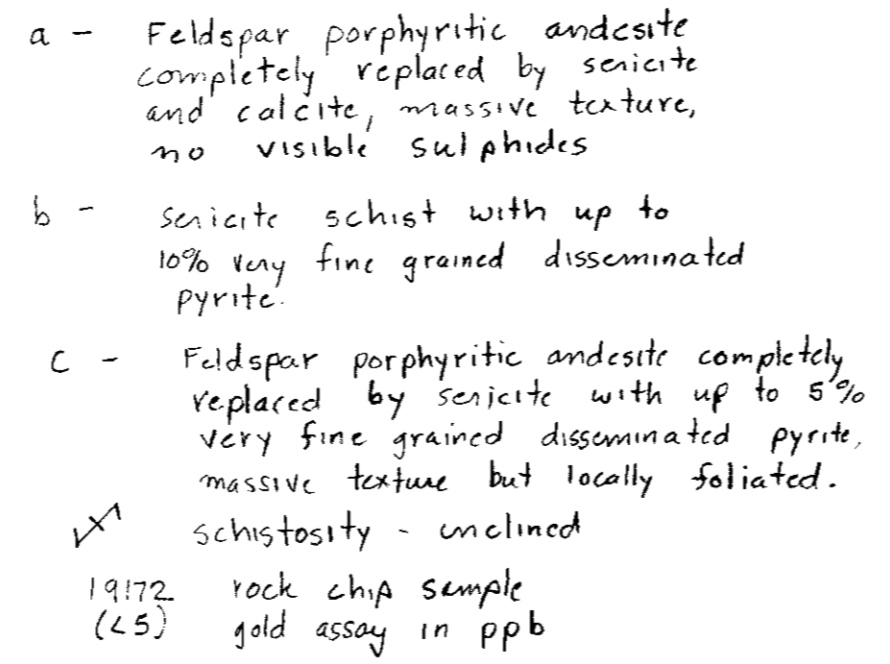 a - Feldspar porphyritic andesite
completely replaced by sericite
and calcite, massive texture,
no visible sulphides
b - Sericite schist with up to
10% very fine grained disseminated
pyrite.
c - Feldspar porphyritic andesite completely
replaced by sericite with up to 5%
very fine grained disseminated pyrite,
massive texture but locally foliated.
schistosity - inclined
19172 rock chip sample
(<5) gold assay in ppb